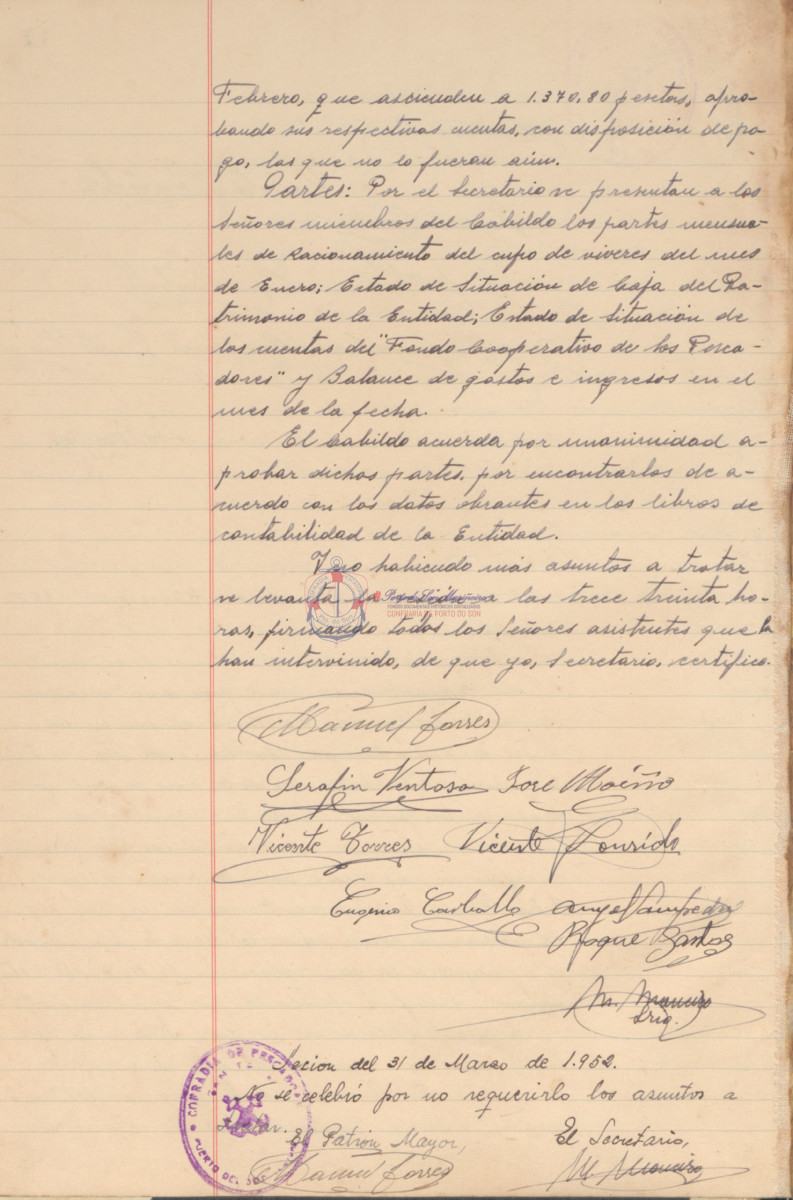 Febrero, que ascienden a 1.370,80 pesetas, apro-
bando sus respectivas cuentas, con disposición de pa-
go, las que no lo fueran aún.
Partes: Por el Secretario se presentan a los
Señores miembros del Cabildo los partes mensua-
les de Racionamiento del cupo de viveres del mes
de Enero; Estado de Situación de Caja del Pa-
trimonio de la Entidad; Estado de Situación de
los cuentas del "Fondo Cooperativo de los Pesca-
dores" y Balance de gastos e ingresos en el
mes de la fecha.
El Cabildo acuerda por unanimidad a-
probar dichos partes, por encontrarlos de a-
cuerdo con los datos obrantes en los libros de
contabilidad de la Entidad.
Y no habiendo más asuntos a tratar
se levanta la sesión a las trece treinta ho-
CONFRARÍA DE PORTO DO SON
ras, firmando todos los Señores asistentes que la
han intervinido, de que yo, Secretario, certifico.
Manuel Torres
Serafin Ventoso Jose Moiño
Vicente Torres Vicente Lourido
Eugenio Carballo Angel Sampedro
Roque Bastos
M. Maneiro
Srio.
Sesion del 31 de Marzo de 1.952.
No se celebró por no requerirlo los asuntos a
tratar.
El Patrón Mayor, El Secretario,
Manuel Torres M. Maneiro
COFRADIA DE PESCADORES
PUERTO DEL SON